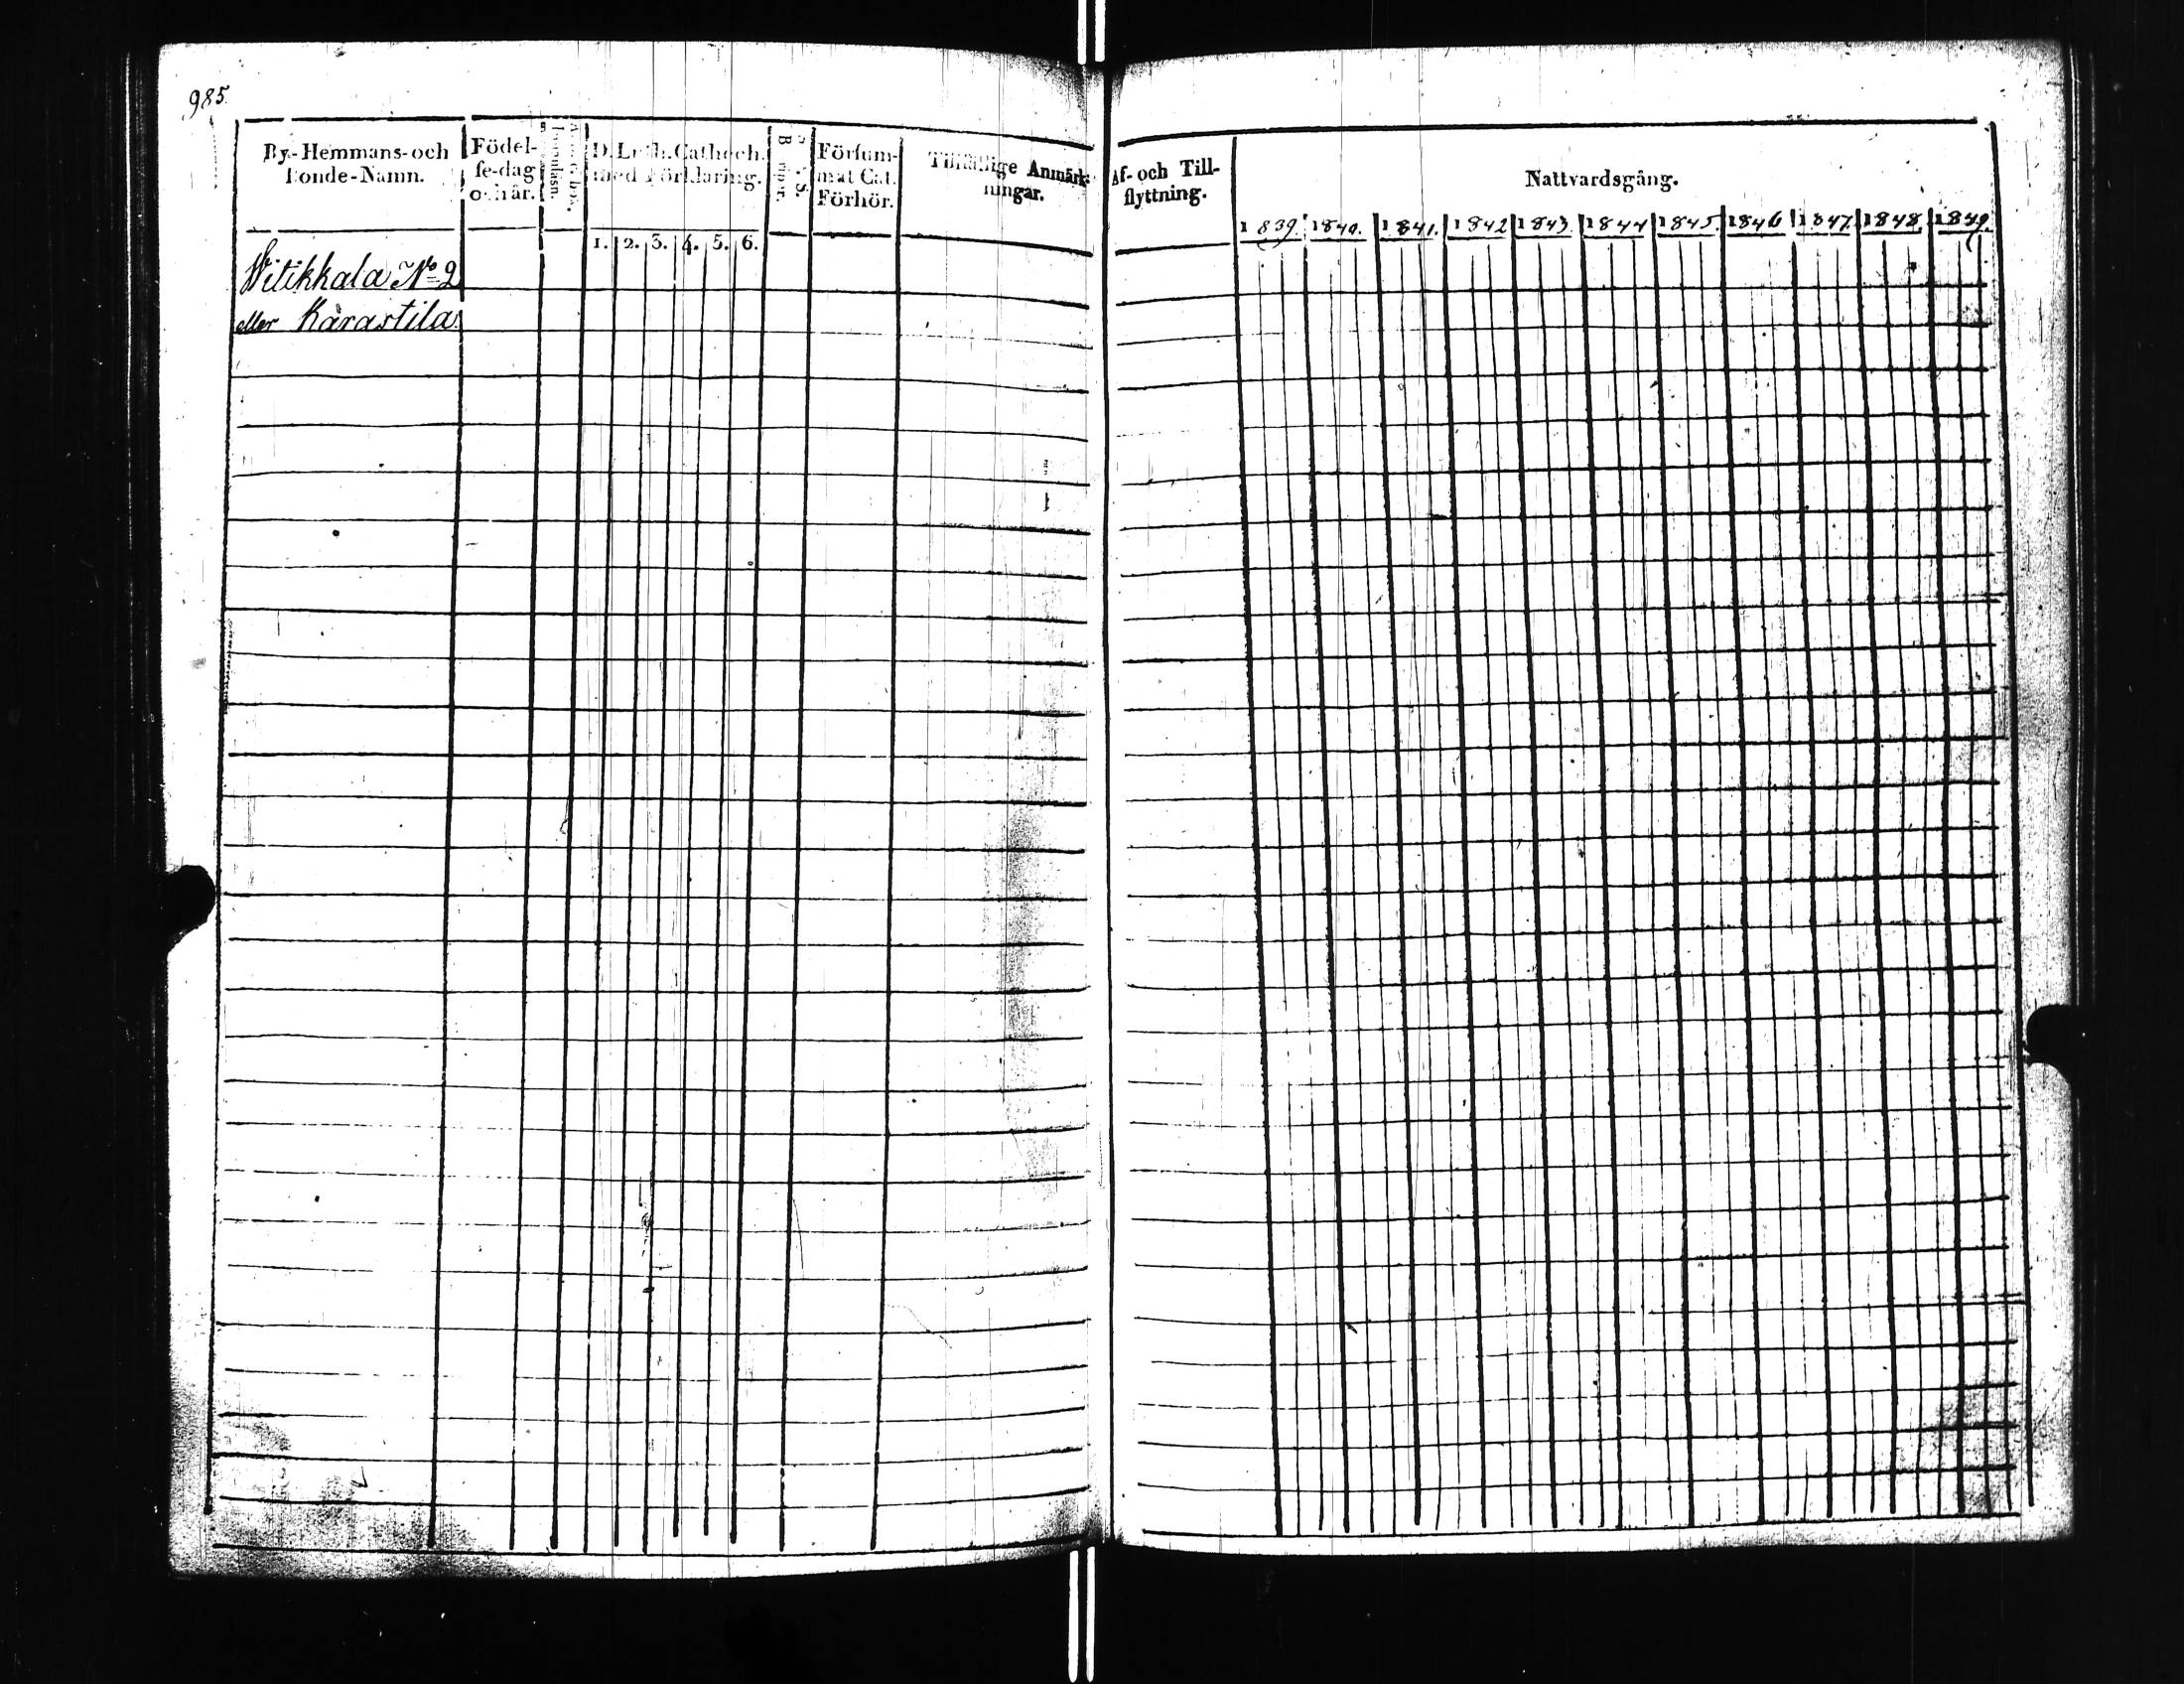 985.
By-Hemmans-och
Bonde-Namn.
Födel-
se-dag
och år.
D. Luth. Cathech.
med Förklaring.
1. 2. 3. 4. 5. 6.
Försum-
mat Cat.
Förhör.
Tillfällige Anmärk-
ningar.
Witikkala No 2
eller Kärastila
Af- och Till-
flyttning.
Nattvardsgång.
1839. 1840. 1841. 1842 1843. 1844 1845. 1846 1847. 1848. 1849.